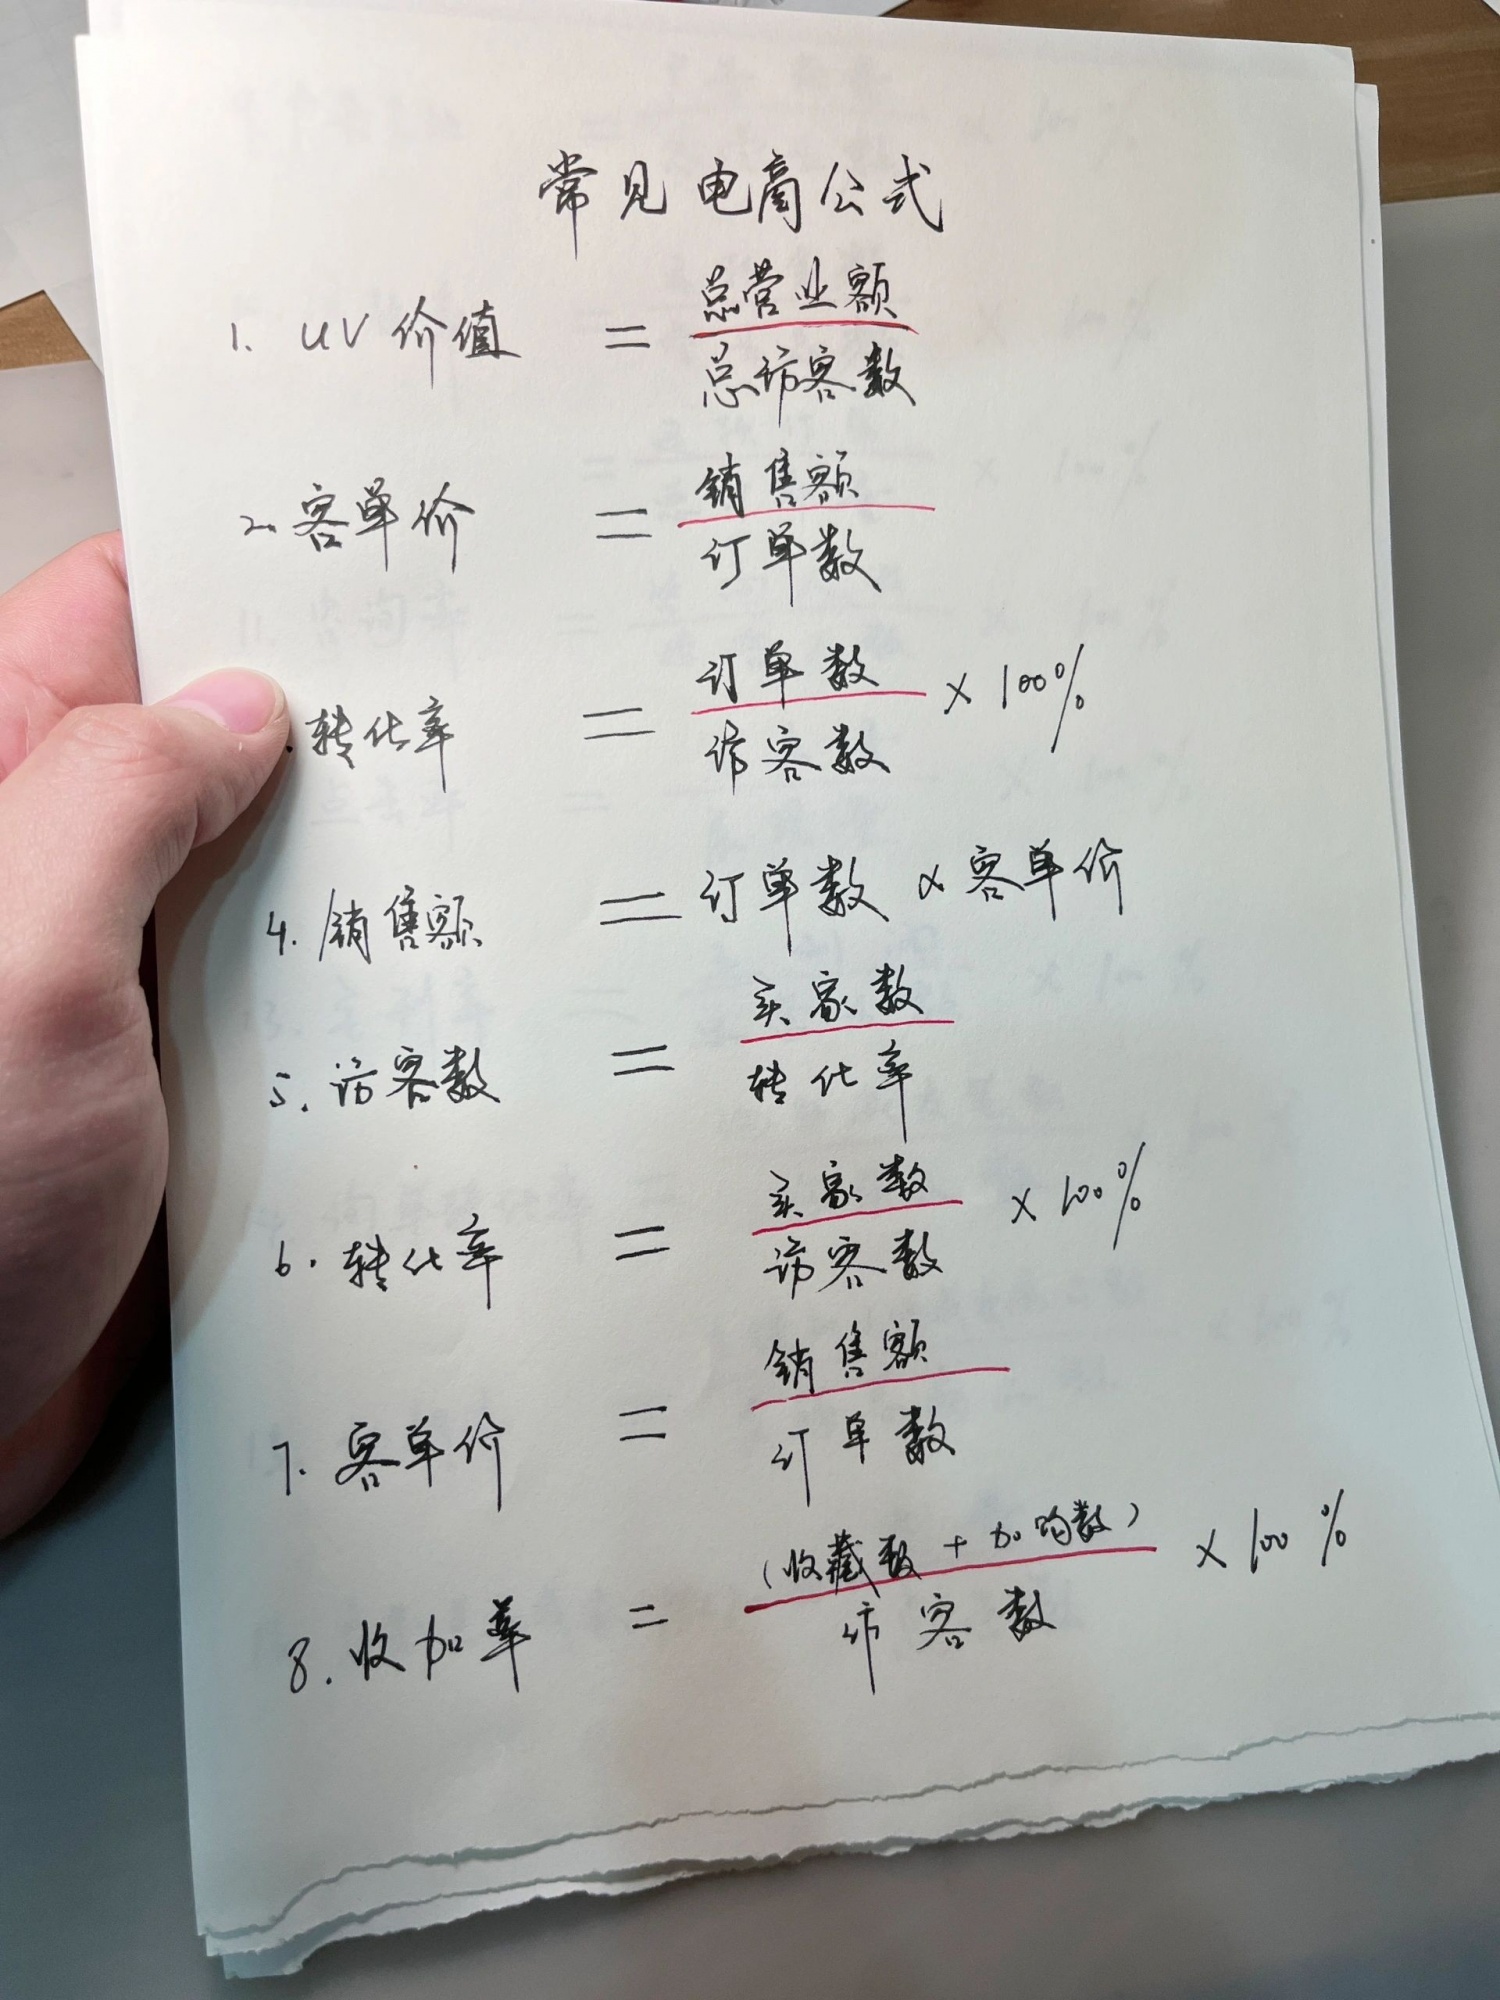 常见电商公式
1. UV价值 = 总营业额 / 总访客数
2. 客单价 = 销售额 / 订单数
. 转化率 = 订单数 / 访客数 × 100%
4. 销售额 = 订单数 × 客单价
5. 访客数 = 买家数 / 转化率
6. 转化率 = 买家数 / 访客数 × 100%
7. 客单价 = 销售额 / 订单数
8. 收加率 = (收藏数 + 加购数) / 访客数 × 100%